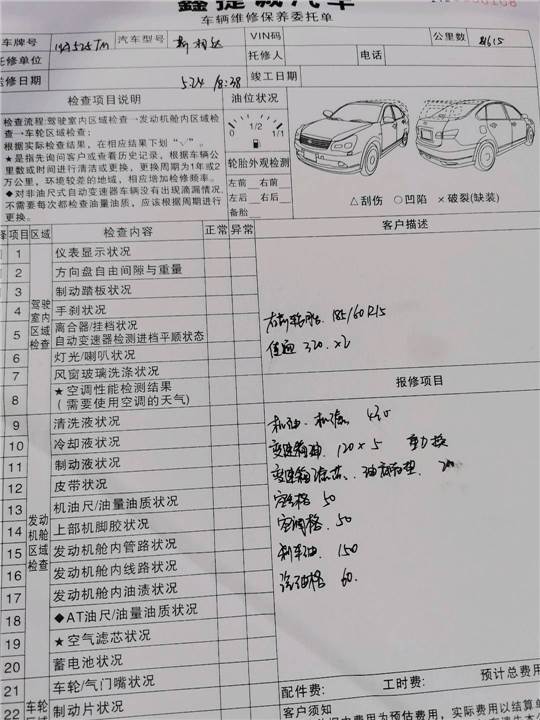 鑫捷诚汽车
车辆维修保养委托单
车牌号 汽车型号 新相达 VIN码 公里数 81615
托修单位 托修人 电话
送修日期 5.24 18:38 竣工日期
检查项目说明 油位状况
检查流程:驾驶室内区域检查→发动机舱内区域检查→车轮区域检查;
根据实际检查结果,在相应结果下划"√"。
★是指先询问客户或查看历史记录,根据车辆公里数或时间进行清洁或更换,更换周期为1年或2万公里,环境较差的地域,相应增加检修频率。
◆对非油尺式自动变速器车辆没有出现滴漏情况,不需要每次都检查油量油质,应该根据周期进行更换。
0 1/2 1/1
轮胎外观检测
左前 右前
左后 右后
备胎
△刮伤 ○凹陷 ×破裂(缺装)
择 项目 区域 检查内容 正常 异常 客户描述
驾驶室内区域检查
1 仪表显示状况
2 方向盘自由间隙与重量
3 制动踏板状况
4 手刹状况
5 离合器/挂档状况
自动变速器检测进档平顺状态
6 灯光/喇叭状况
7 风窗玻璃洗涤状况
8 ★空调性能检测结果
(需要使用空调的天气)
185/60R15
320 ×2
报修项目
发动机舱区域检查
9 清洗液状况
10 冷却液状况
11 制动液状况
12 皮带状况
13 机油尺/油量油质状况
14 上部机脚胶状况
15 发动机舱内管路状况
16 发动机舱内线路状况
17 发动机舱内油渍状况
18 ◆AT油尺/油量油质状况
19 ★空气滤芯状况
20 蓄电池状况
机油、机滤
变速箱油 120×5
变速箱滤芯、油底
空气格 50
空调格 50
刹车油 150
汽油格 60.
车轮区域
21 车轮/气门嘴状况
22 制动片状况
配件费: 工时费: 预计总费用
客户须知
为预估费用,实际费用以结算单